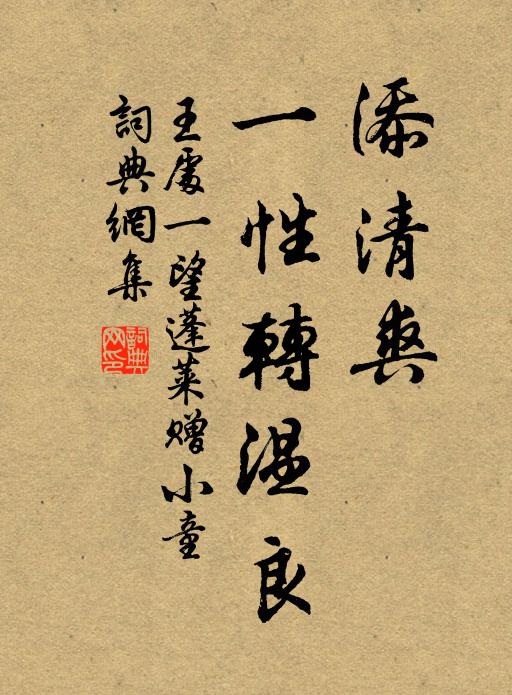 添清爽
一性轉温良
王處一望蓬萊贈小童
詞典網集
詞典網印